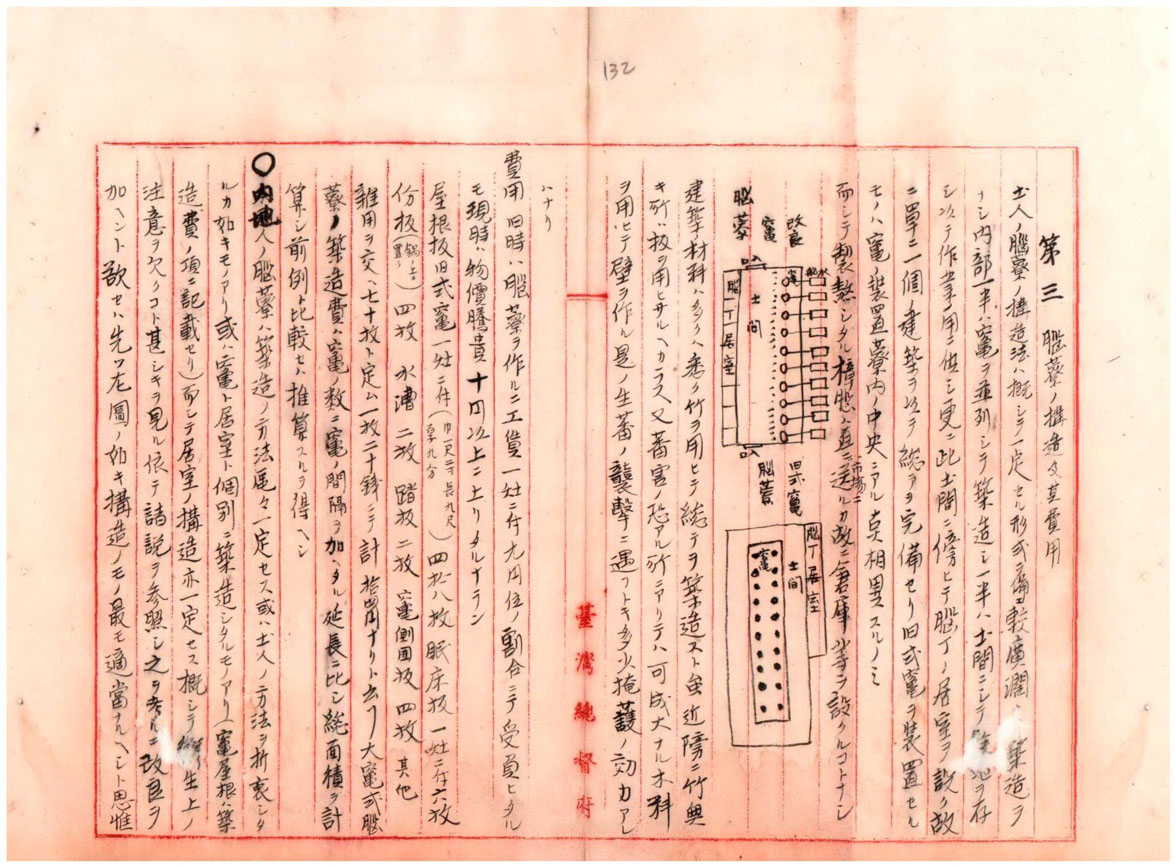 132
第三 脳藔ノ構造及其費用
土人ノ脳寮ノ構造法ハ概シテ一定セル形式ヲ備ヱ較広濶ノ築造ヲ
ナシ内部一半ハ竃ヲ並列シテ築造シ一半ハ土間ニシテ ヲ存
シ以テ作業ノ用ニ供シ更ニ此土間ニ傍ヒテ脳丁ノ居室ヲ設ク故
ニ単ニ一個ノ建築ヲ以テ総テヲ完備セリ旧式竃ヲ装置セル
モノハ竃ノ装置藔内ノ中央ニアル点相異スルノミ
而シテ製熬シタル樟脳ハ直ニ市場ニ送ルカ故ニ倉庫 等ヲ設クルコトナシ
改良竃脳藔
入口
竃
土間
脳丁居室
入口
旧式竃脳藔
脳丁居室
土間
竃
建築ノ材料ハ多クハ悉ク竹ヲ用ヒテ総テヲ築造スト雖近隣ニ竹無
キ所ハ板ヲ用ヒサルヘカラス又蕃害ノ恐アル所ニアリテハ可成大ナル木料
ヲ用ヒテ壁ヲ作ル是ノ生蕃ノ襲撃ニ遇フトキ多少掩護ノ効力アレ
ハナリ
臺灣總督府
費用 旧時ハ脳藔ヲ作ルニ工賃一灶ニ付九円位ノ割合ニテ受負ヒタル
モ現時ハ物價騰貴十円以上ニ上リタルナラン
屋根板旧式竃一灶ニ付（巾一尺二寸長九尺厚九分）四拾八枚眠床板一灶ニ付六枚
份板（鍋ノ上ニ置ク）四枚 水漕二枚 踏板二枚 竃側囲板四枚 其他
雑用ヲ交へ七十枚ト定ム一枚二十銭ニテ計拾四円ナリト云フ大竃式脳
藔ノ築造費ハ竃ノ数ニ竃ノ間隔ヲ加ヘタル延長ニ比シ総面積ヲ計
算シ前例ト比較セハ推算スルヲ得ヘシ
〇内地人ノ脳藔ハ築造ノ方法区々一定セス或ハ土人ノ方法ヲ折衷シタ
ルカ如キモノアリ或ハ竃ト居室ト個別ニ築造シタルモノアリ（竃屋根ハ築
造費ノ項ニ記載セリ）而シテ居室ノ構造亦一定セス概シテ衛生上ノ
注意ヲ欠クコト甚シキヲ見ル依テ諸説ヲ参照シ之ヲ考ルニ改良ヲ
加ヘント欲セハ先ツ左圖ノ如キ構造ノモノ最モ適當ナルヘシト思惟